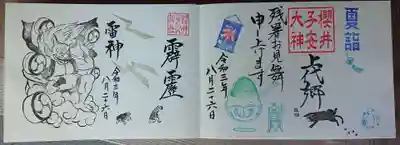 夏詣
櫻井
子安
大神
上代郷
残暑お見舞
申し上げます
令和三年
八月二十六日
霹靂
雷神
令和三年
八月二十六日